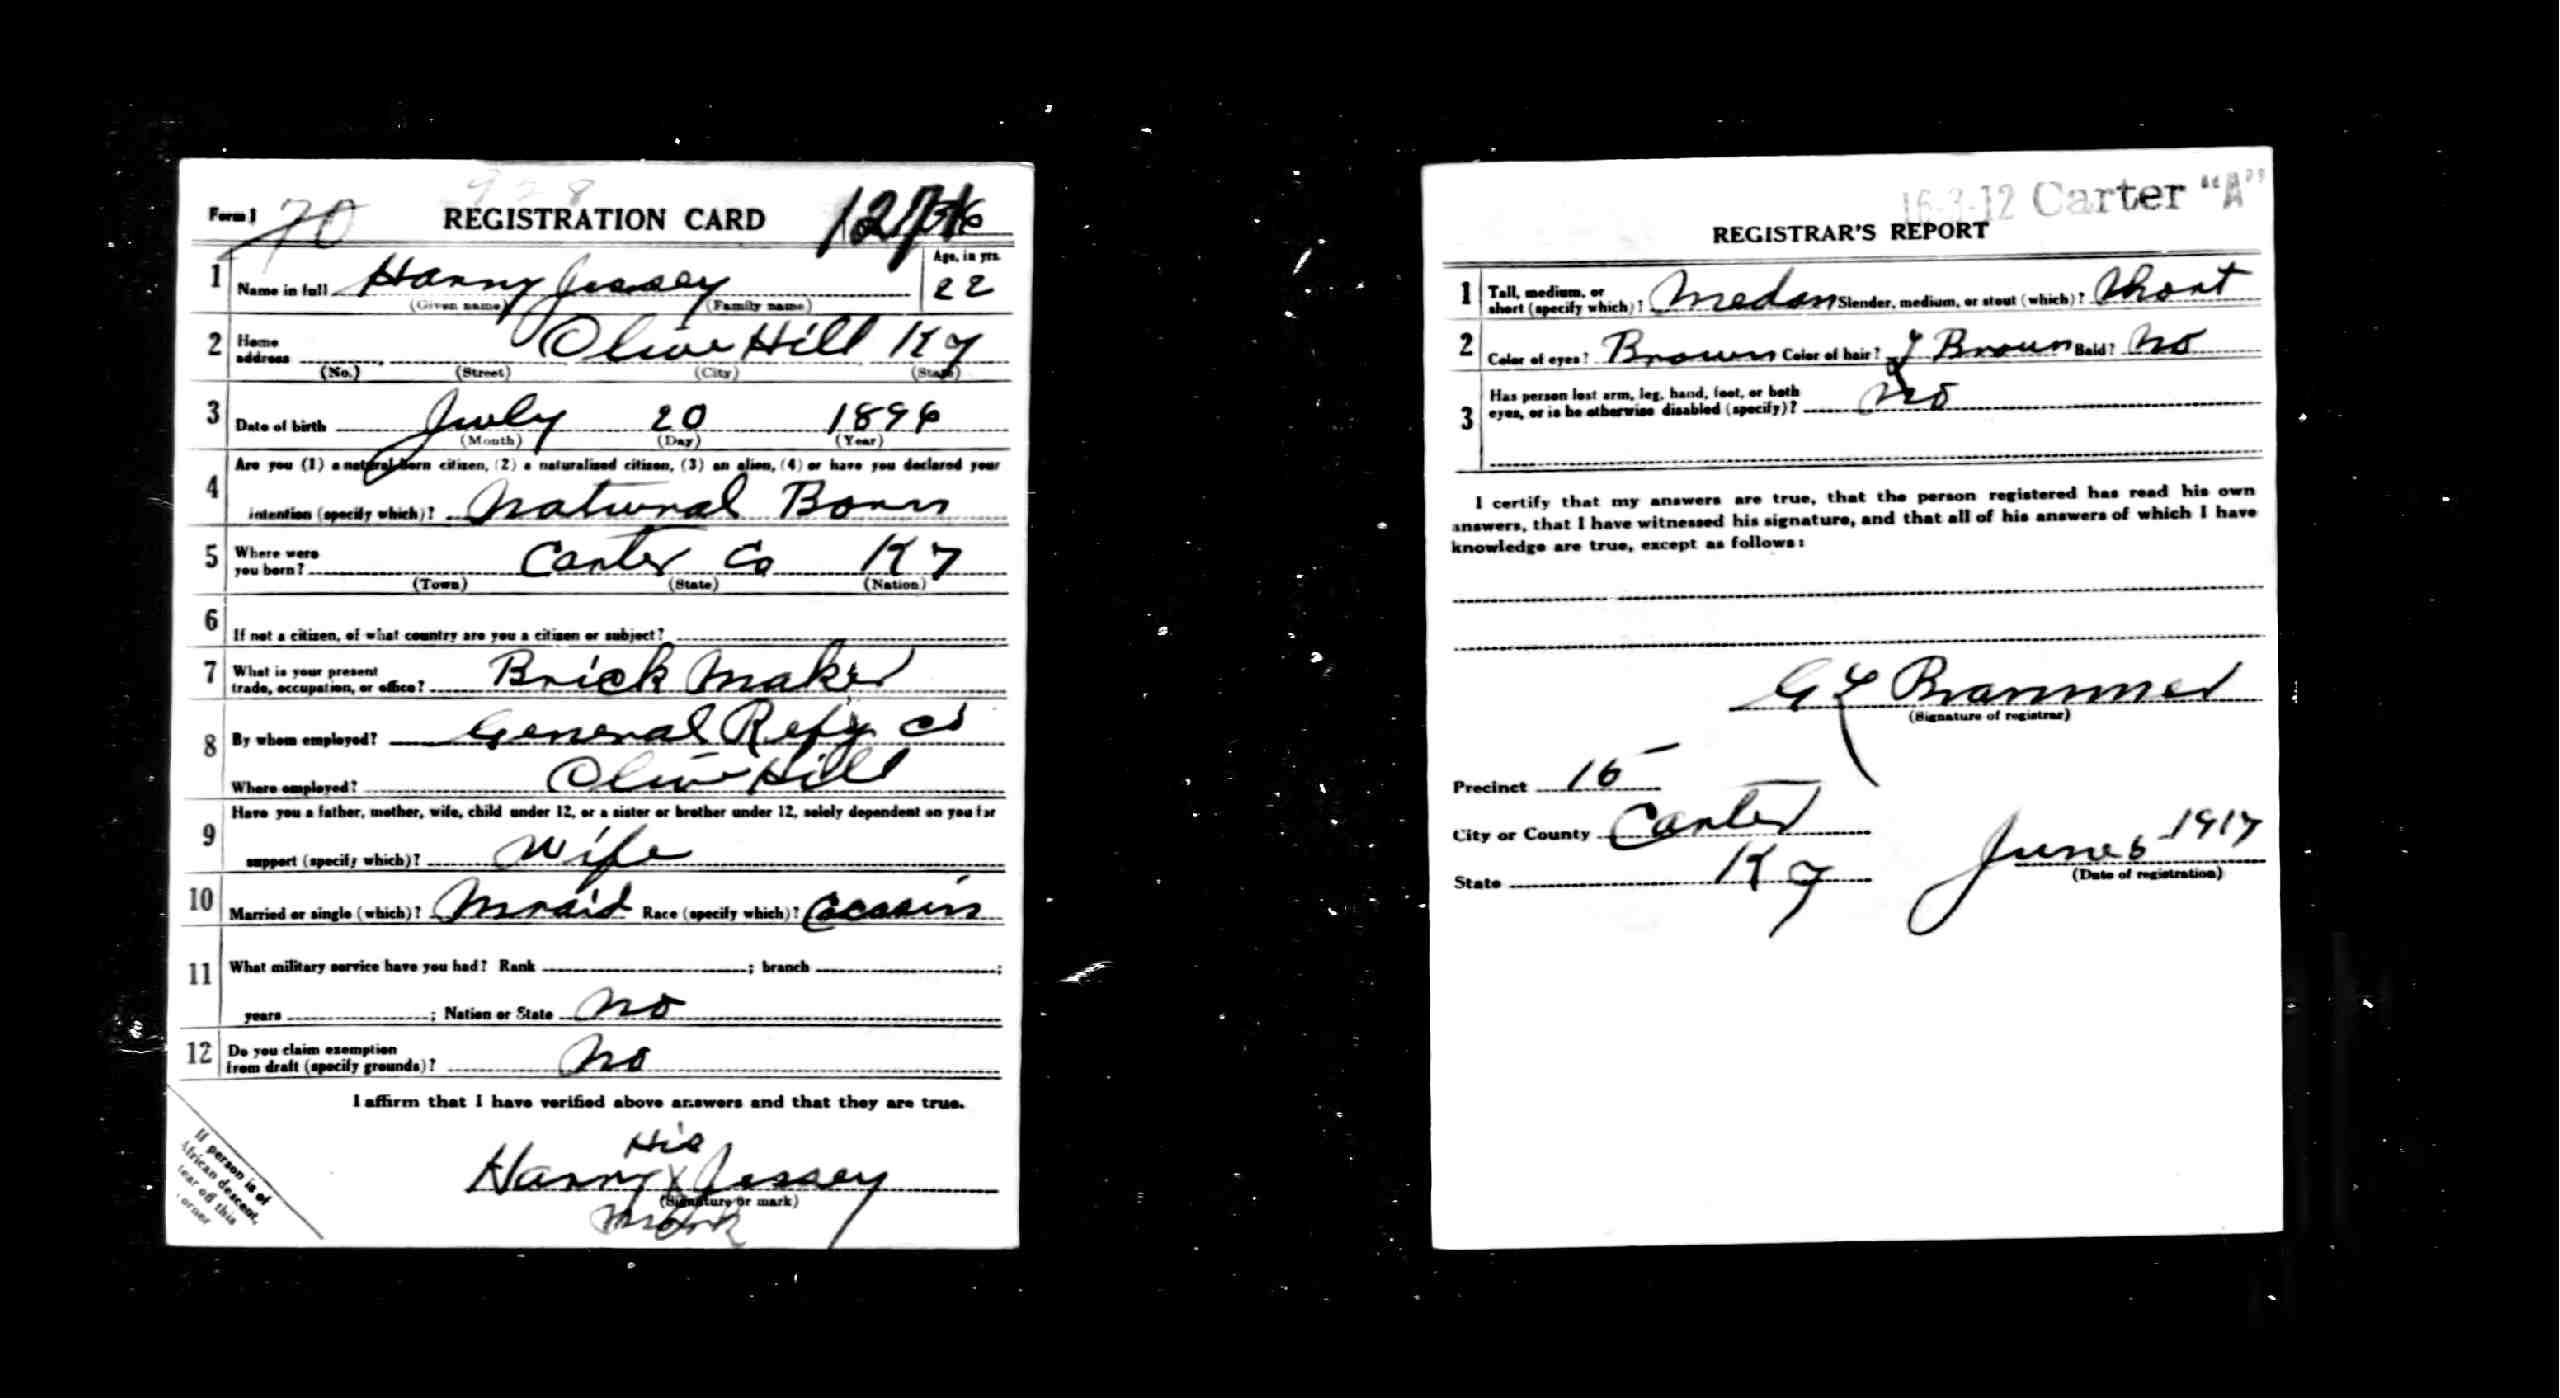 928
Form 1 70 REGISTRATION CARD
Age, in yrs.
1 Name in full Harry Jessey 22
(Given name) (Family name)
2 Home address Olive Hill Ky
(No.) (Street) (City) (State)
3 Date of birth July 20 1896
(Month) (Day) (Year)
4 Are you (1) a natural born citizen, (2) a naturalized citizen, (3) an alien, (4) or have you declared your
intention (specify which)? Natural Born
5 Where were you born? Carter Co Ky
(Town) (State) (Nation)
6 If not a citizen, of what country are you a citizen or subject?
7 What is your present trade, occupation, or office? Brick Maker
8 By whom employed? General Refy Co
Where employed? Olive Hill
9 Have you a father, mother, wife, child under 12, or a sister or brother under 12, solely dependent on you for
support (specify which)? Wife
10 Married or single (which)? Mraid Race (specify which)?
11 What military service have you had? Rank ; branch ;
years ; Nation or State no
12 Do you claim exemption from draft (specify grounds)? no
I affirm that I have verified above answers and that they are true.
His
Harry X Jessey
(Signature or mark)
mark
If person is of
African descent,
tear off this
corner
16-3-12 Carter "A"
REGISTRAR'S REPORT
1 Tall, medium, or short (specify which)? Medon Slender, medium, or stout (which)? Short
2 Color of eyes? Brown Color of hair? L Brown Bald? No
3 Has person lost arm, leg, hand, foot, or both eyes, or is he otherwise disabled (specify)? No
I certify that my answers are true, that the person registered has read his own
answers, that I have witnessed his signature, and that all of his answers of which I have
knowledge are true, except as follows:
G L Brammer
(Signature of registrar)
Precinct 15
City or County Carter
State Ky
June 6 1917
(Date of registration)